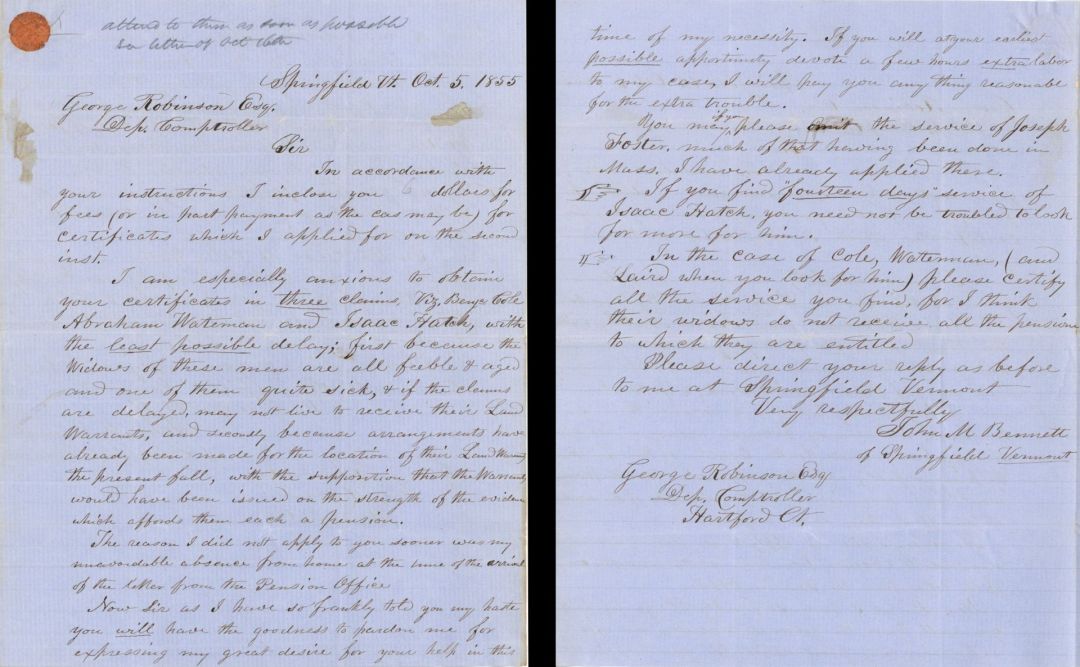 attend to them as soon as possible
See letter of Oct 16th
Springfield Vt. Oct. 5, 1855
George Robinson Esq.
Dep. Comptroller
Sir
In accordance with
your instructions I inclose you 6 dollars for
fees (or in part payment as the cas may be) for
certificates which I applied for on the second
inst.
I am especially anxious to obtain
your certificates in three claims, Viz, Benj. Cole
Abraham Waterman and Isaac Hatch, with
the least possible delay; first because the
Widows of these men are all feeble & aged
and one of them quite sick, & if the claims
are delayed, may not live to receive their Land
Warrants, and secondly because arrangements have
already been made for the location of their Land Warrants
the present fall, with the supposition that the Warrants
would have been issued on the strength of the eviden
which affords them each a pension.
The reason I did not apply to you sooner was my
unavoidable absence from home at the time of the arrival
of the letter from the Pension Office
Now Sir as I have so frankly told you my haste
you will have the goodness to pardon me for
expressing my great desire for your help in this
time of my necessity. If you will at your earliest
possible opportunity devote a few hours extra labor
to my case, I will pay you any thing reasonable
for the extra trouble.
You may, if you please omit the service of Joseph
Foster, much of that having been done in
Mass. I have already applied there.
If you find "fourteen days" service of
Isaac Hatch, you need not be troubled to look
for more for him.
In the case of Cole, Waterman, (and
Laird when you look for him) please certify
all the service you find, for I think
their widows do not receive all the pension
to which they are entitled
Please direct your reply as before
to me at Springfield Vermont
Very respectfully
John M Bennett
of Springfield Vermont
George Robinson Esq
Dep. Comptroller
Hartford Ct.